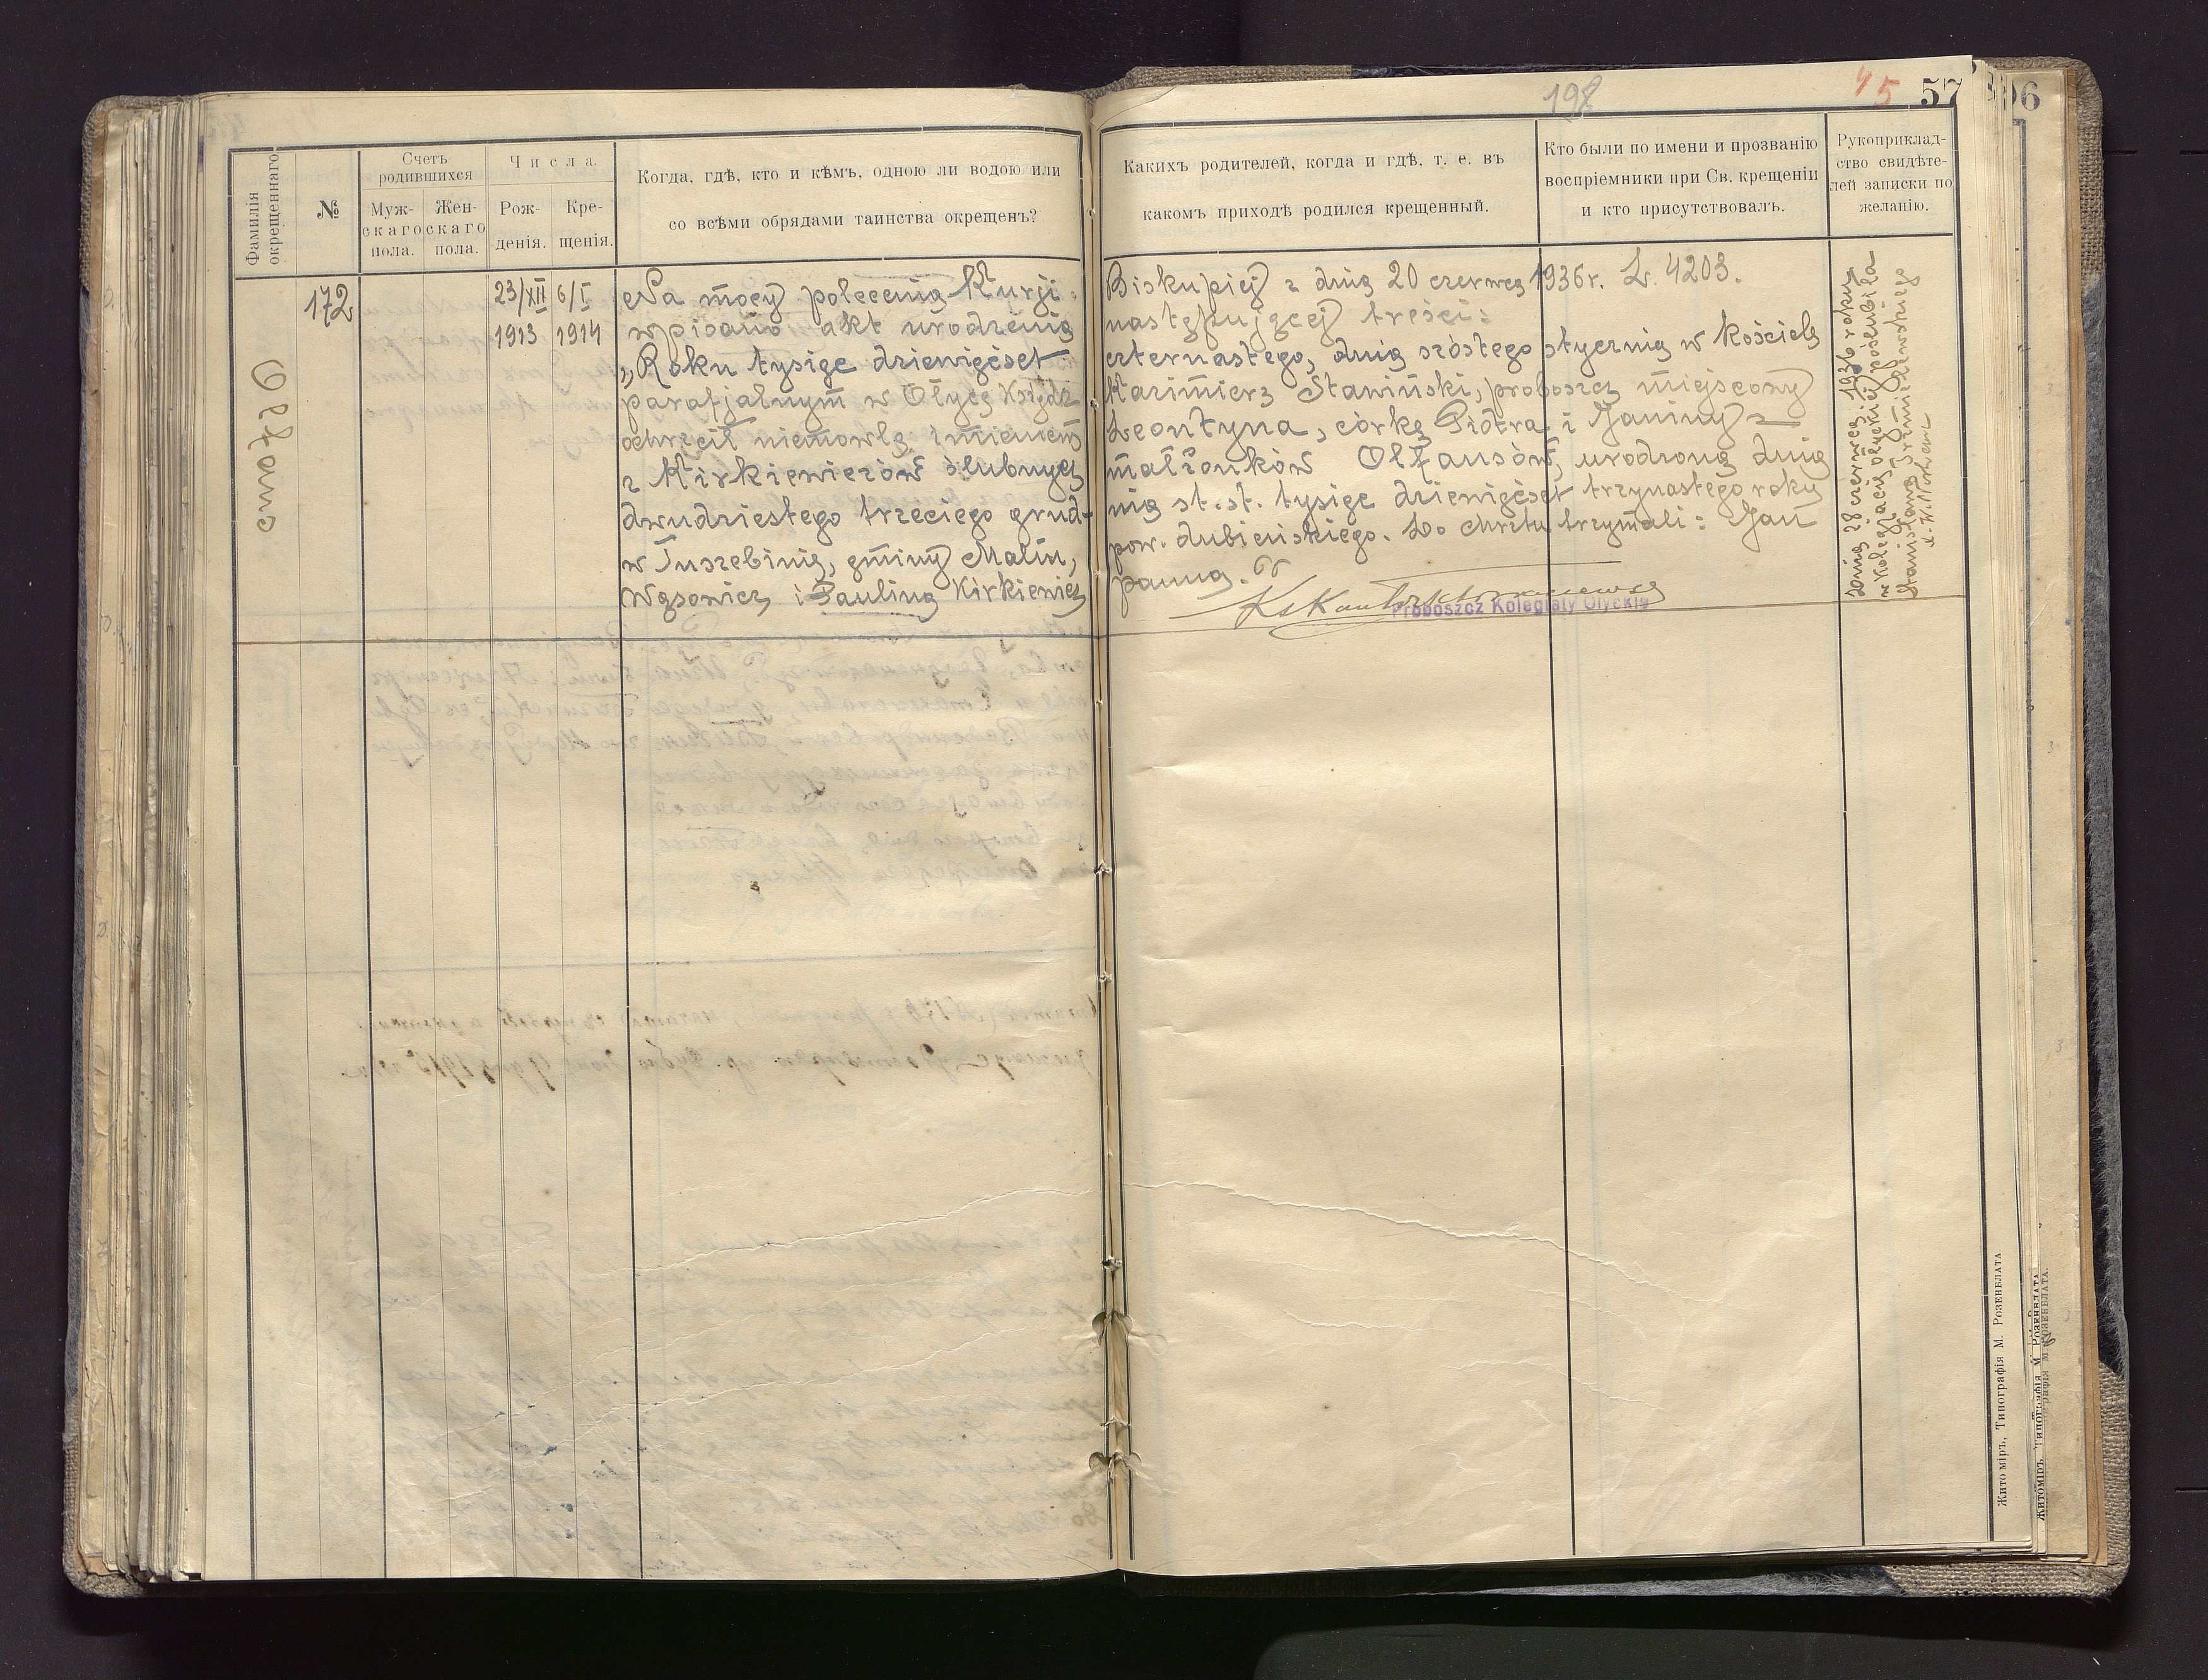 198
45
57
96
Фамилія
окрещеннаго
№
Счетъ
родившихся
Муж-
скаго
пола.
Жен-
скаго
пола.
Числа.
Рож-
денія.
Кре-
щенія.
Когда, гдѣ, кто и кѣмъ, одною ли водою или
со всѣми обрядами таинства окрещенъ?
Какихъ родителей, когда и гдѣ, т. е. въ
какомъ приходѣ родился крещенный.
Кто были по имени и прозванію
воспріемники при Св. крещеніи
и кто присутствовалъ.
Рукоприклад-
ство свидѣте-
лей записки по
желанію.
Olfans
172
23/XII
1913
6/I
1914
Na mocy polecenia Kurji Biskupiej z dnia 20 czerwca 1936 r. L. 4203.
wpisano akt urodzenia następującej treści:
„Roku tysiąc dziewięćset czternastego, dnia szóstego stycznia w kościele
parafjalnym w Ołyce Ksiądz Kazimierz Stawiński, proboszcz miejscowy
ochrzcił niemowlę imieniem Leontyna, córkę Piotra i Janiny z
z Kirkiewiczów ślubnych małżonków Olfansów, urodzoną dnia
dwudziestego trzeciego grud- nia st. st. tysiąc dziewięćset trzynastego roku
w Tuszebinie, gminy Malin, pow. dubieńskiego. Do chrztu trzymali: Jan
Wąsowicz i Paulina Kirkiewicz panna.
Proboszcz Kolegiaty Ołyckiej
Dnia 28 czerwca 1936 roku
w Kolegjacie ołyckiej poślubiła
Stanisława
Житоміръ, Типографія М. Розенблата
Житоміръ, Типографія М. Розенблата.